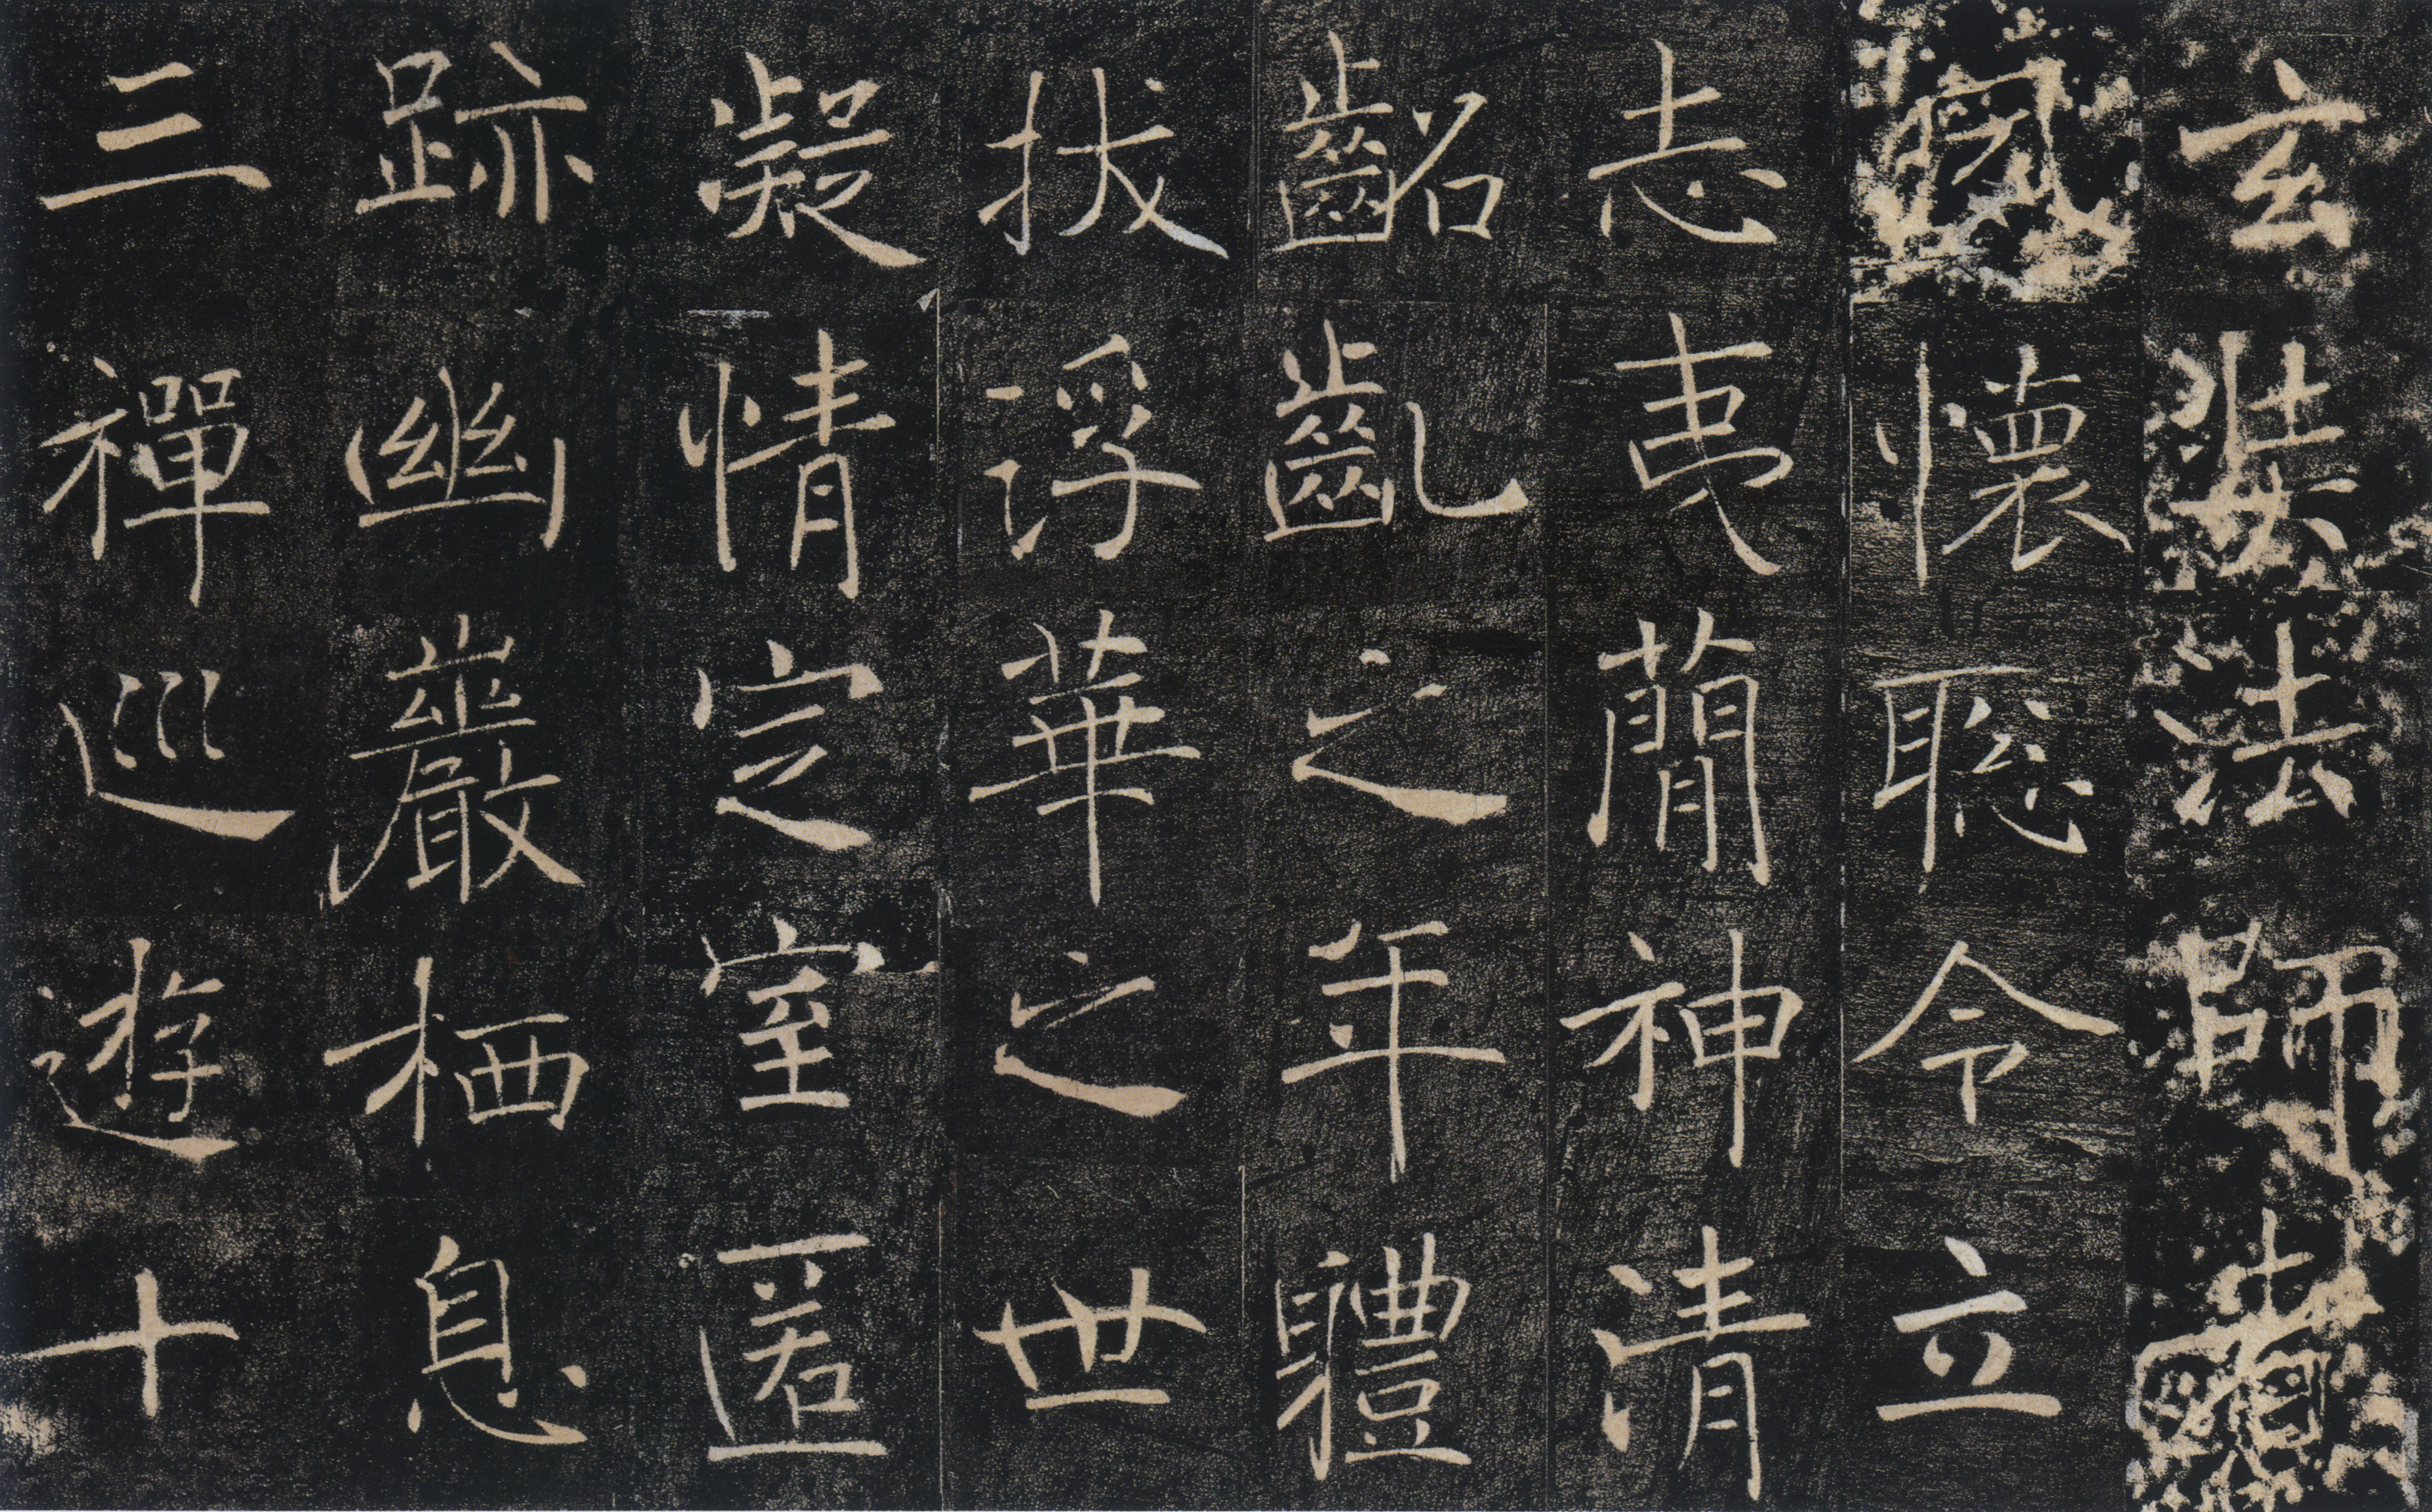 玄奘法師者
夙懷聰令立
志夷蕳神清
齠齓之年體
拔浮華之世
凝情定室匿
跡幽巖栖息
三禪巡遊十